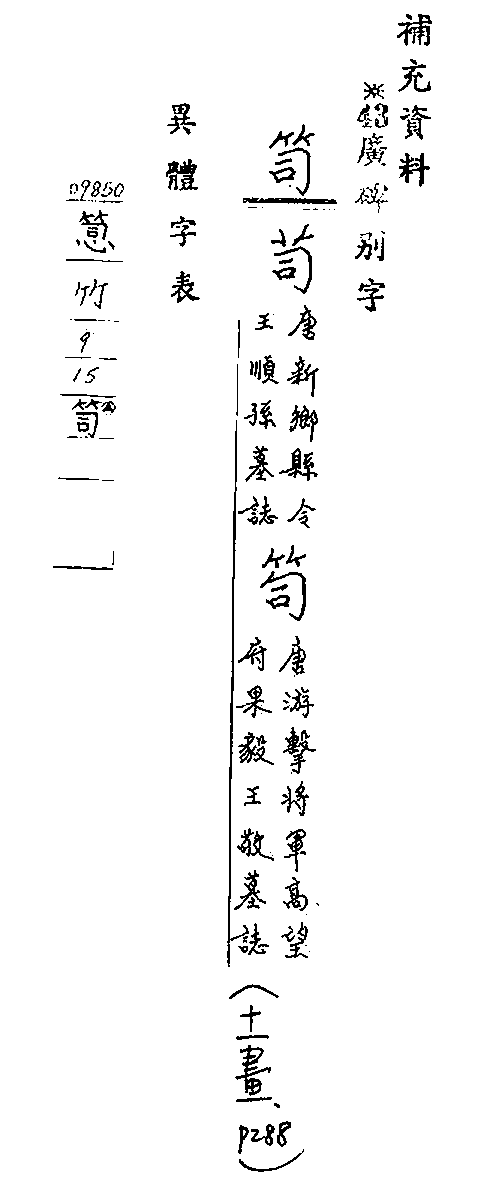 補充資料
※43廣碑別字
笥
䔮
唐新鄉縣令
王順孫墓誌
笱
唐游擊將軍高望
府果毅王敬墓誌
(十一畫、P288)
異體字表
09850
竹
9
15
笥